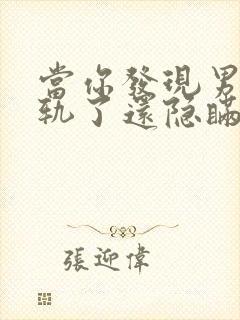 當你發現男
軌了還隐瞞
張迎偉